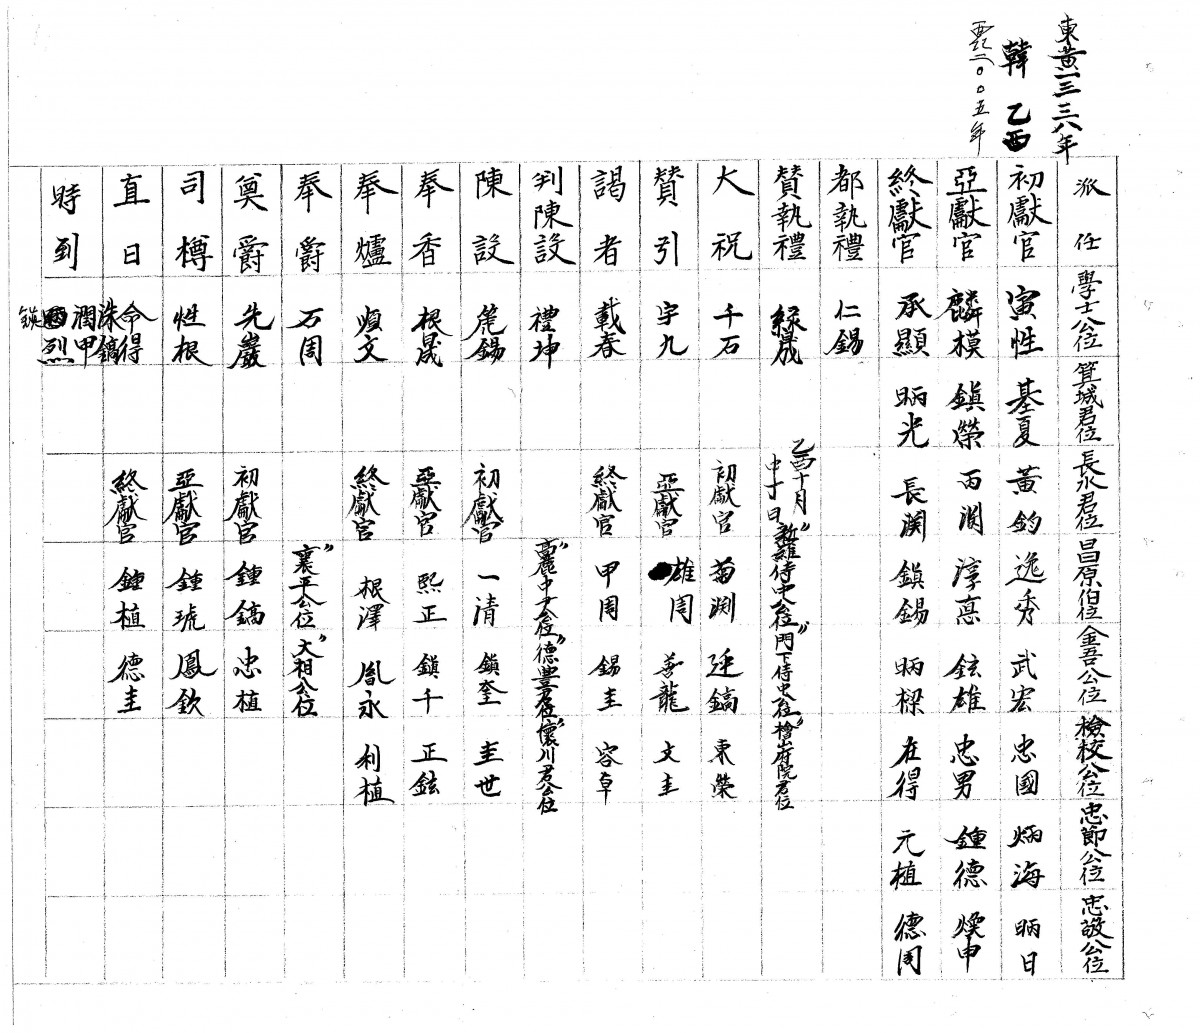 東黃一三三八年
韓 乙酉
西紀二００五年
派任 學士公位 箕城君位 長水君位 昌原伯位 金吾公位 檢校公位 忠節公位 忠敬公位
初獻官 寅性 基夏 黃鈞 逸秀 武宏 忠國 炳海 昞日
亞獻官 麟模 鎭榮 丙淵 淳憙 鉉雄 忠男 鍾德 煥申
終獻官 承顯 昞光 長渕 鎭錫 昞樑 在得 元植 德周
都執禮 仁錫
贊執禮 綠晟 乙酉十月中丁日 新羅侍中公位 門下侍中公位 檜山府院君位
大祝 千石 初獻官 菊渊 延鎬 東榮
贊引 宇九 亞獻官 雄周 善龍 文圭
謁者 載春 終獻官 甲周 錫圭 容卓
判陳設 禮坤 高麗 公位 德豊君位 懷川君公位
陳設 箢錫 初獻官 一清 鎭奎 圭世
奉香 根晟 亞獻官 熙正 鎭千 正鉉
奉爐 順文 終獻官 根澤 胤永 利植
奉爵 石周 襄平公位 大相公位
奠爵 先巖 初獻官 鍾鎬 忠植
司樽 性根 亞獻官 鍾琥 鳳欽
直日 命得 洙鎬 終獻官 鍾植 德圭
時到 潤甲 烈